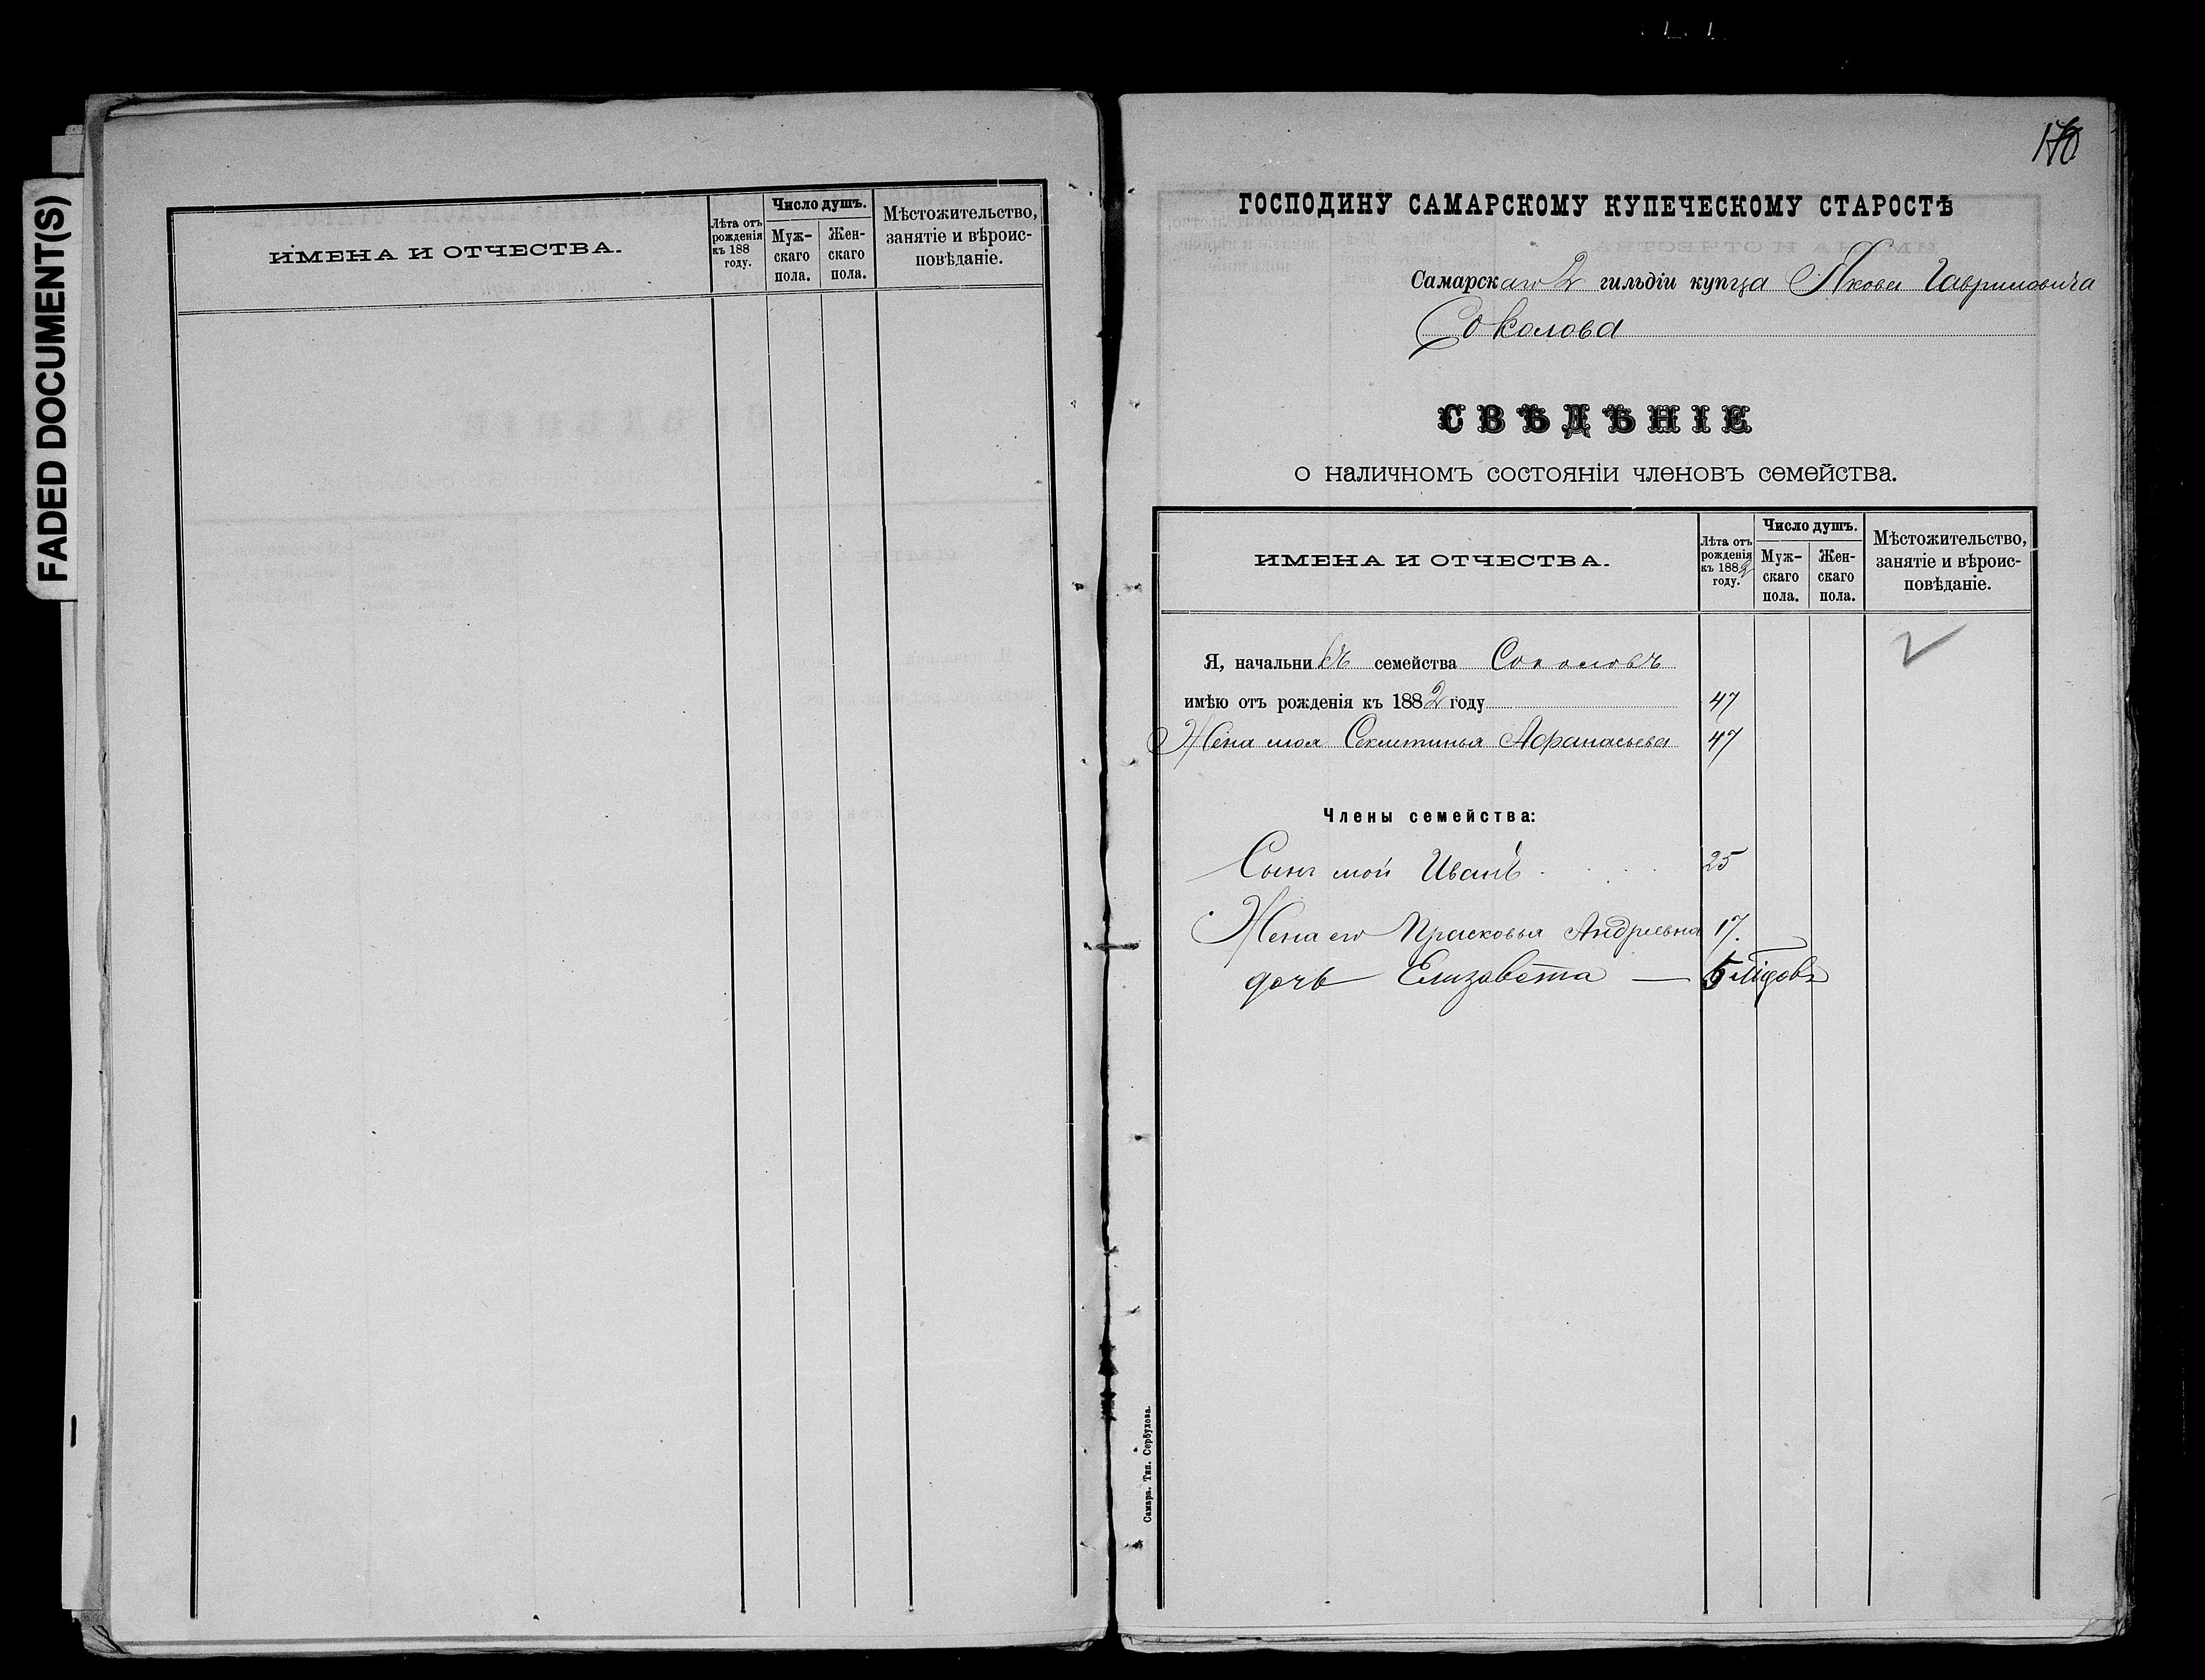 FADED DOCUMENT(S)
ИМЕНА И ОТЧЕСТВА.
Лѣта отъ рожденія къ 188 году.
Число душъ.
Муж-скаго пола.
Жен-скаго пола.
Мѣстожительство,
занятіе и вѣроис-
повѣданіе.
ГОСПОДИНУ САМАРСКОМУ КУПЕЧЕСКОМУ СТАРОСТѢ
Самарскаго 2 гильдіи купца Якова Гавриловича
Соколова
СВѢДѢНІЕ
о наличномъ состояніи членовъ семейства.
ИМЕНА И ОТЧЕСТВА.
Лѣта отъ рожденія къ 1882 году.
Число душъ.
Муж-скаго пола.
Жен-скаго пола.
Мѣстожительство,
занятіе и вѣроис-
повѣданіе.
Я, начальникъ семейства Соколовъ
имѣю отъ рожденія къ 1882 году 47
Жена моя Секлетинья Афанасьева 47
Члены семейства:
Сынъ мой Иванъ 25
Жена его Прасковья Андревна 17.
дочь Елизавета —
Самара. Тип. Сербулова.